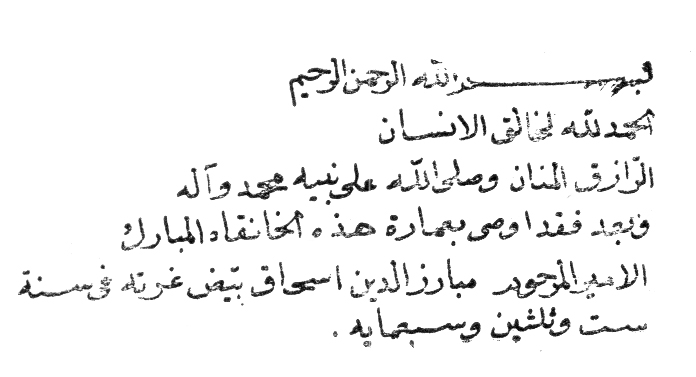 بسم الله الرحمن الرحيم
الحمد لله لخالق الانسان
الرّازق المنان وصلى الله على نبيه محمد وآله
وبعد فقد اوصى بعمارة هذه الخانقاه المبارك
الامير المرحوم مبارز الدين اسحاق بيّض غرته فى سنة
ست وثلثين وسبعمايه .